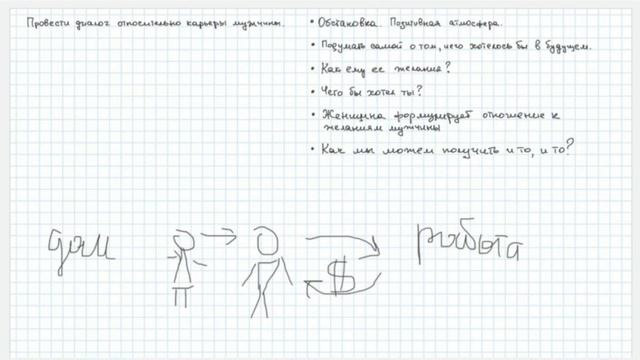 Провести диалог относительно карьеры мужчины.
• Обстановка. Позитивная атмосфера.
• Подумать самой о том, чего хотелось бы в будущем.
• Как ему ее желания?
• Чего бы хотел ты?
• Женщина формирует отношение к
желаниям мужчины
• Как мы можем получить и то, и то?
дом
$
работа